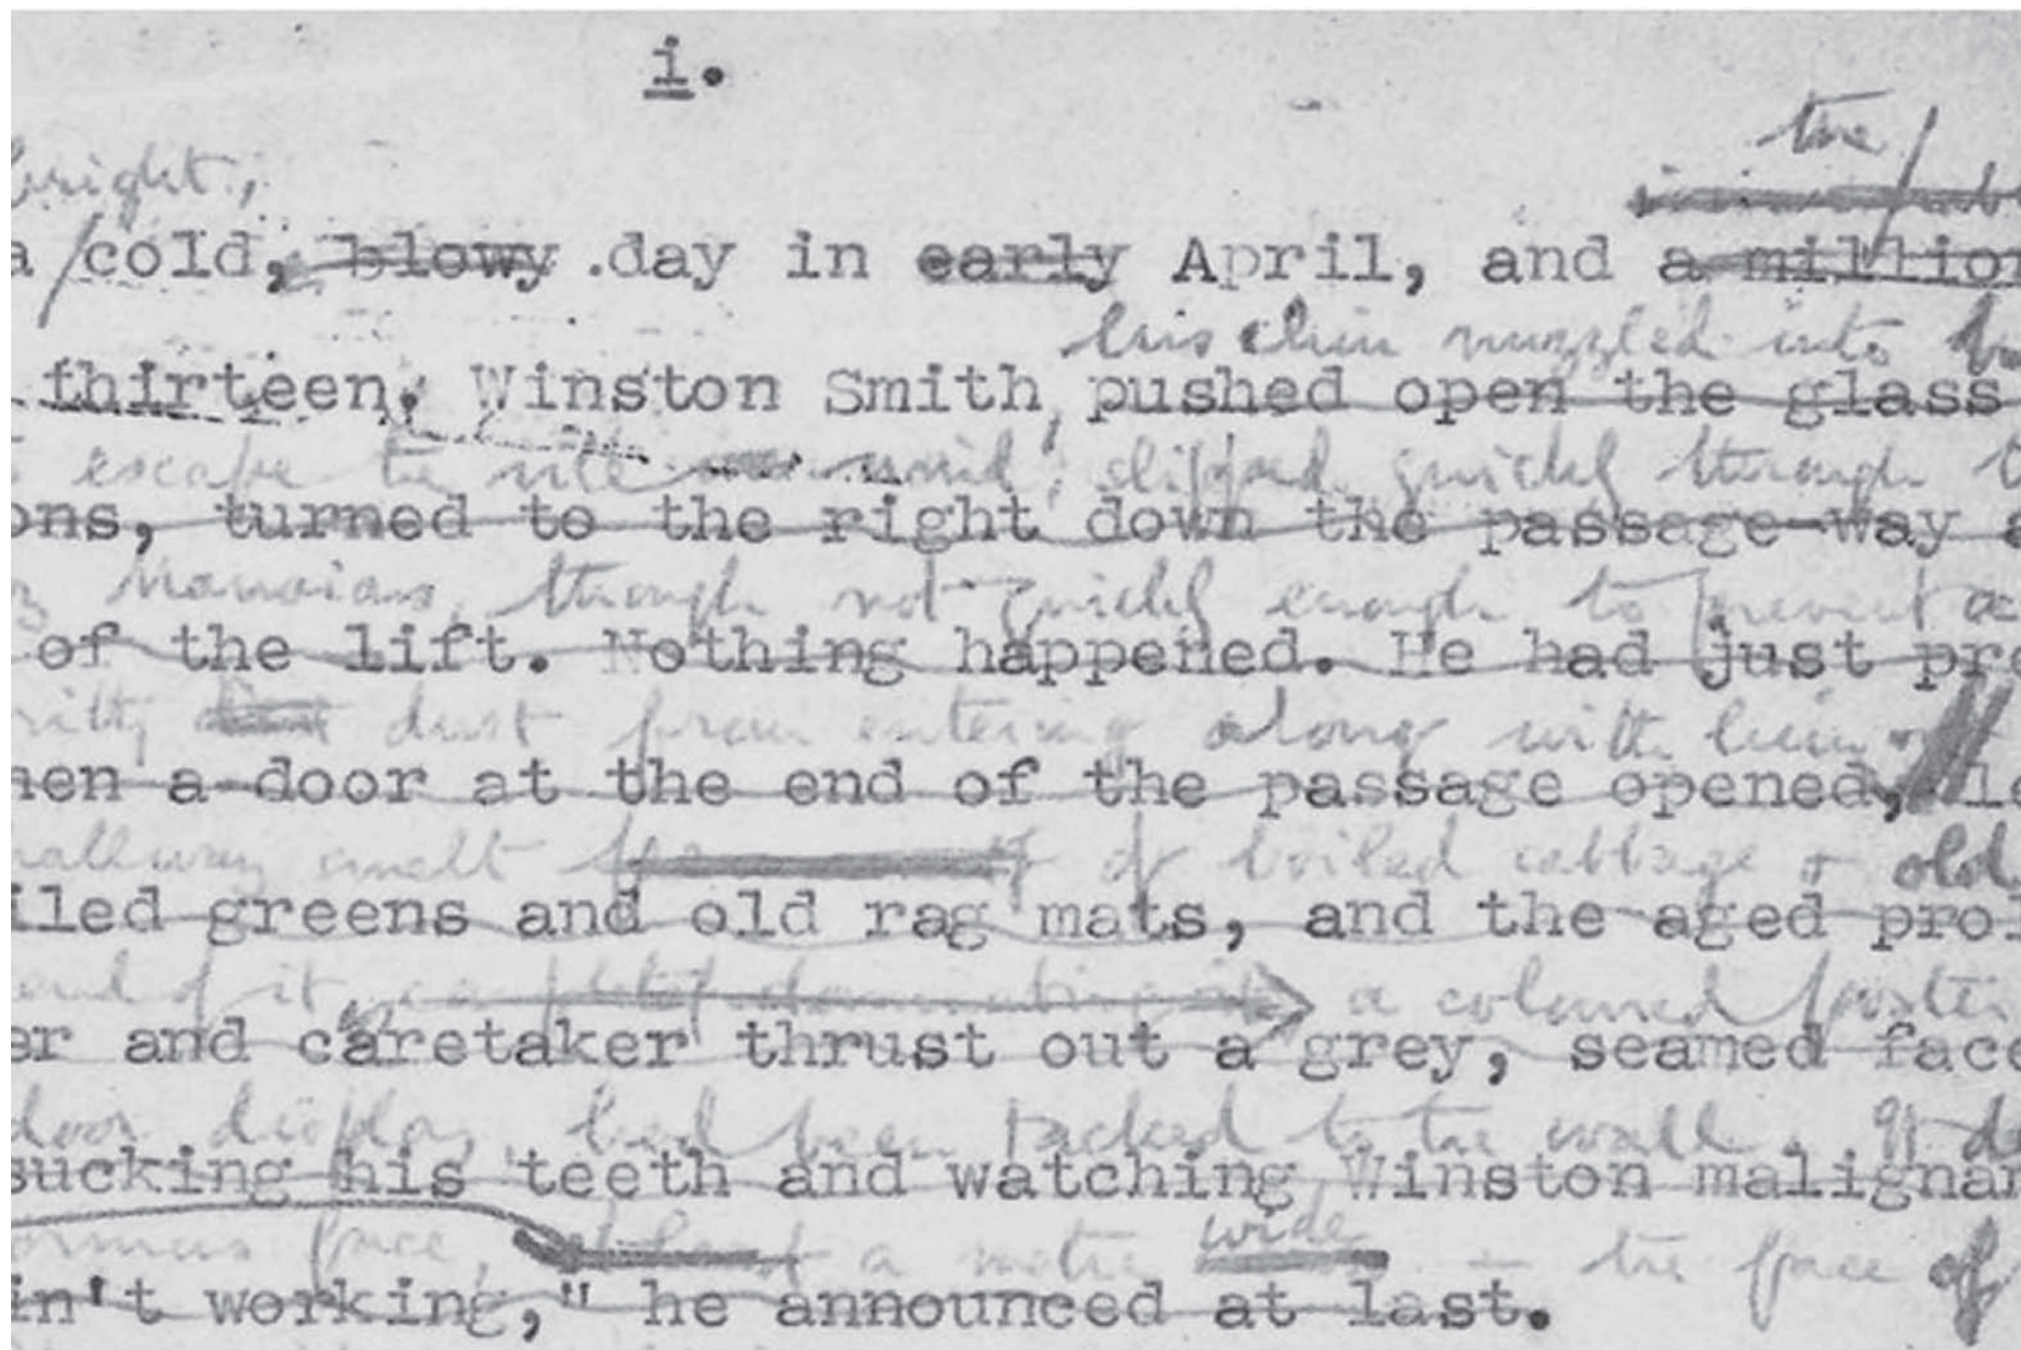 i.
the
bright,
a cold, blowy day in early April, and a million
his chin nuzzled into
thirteen. Winston Smith, pushed open the glass
escape the vile wind, slipped quickly through
ons, turned to the right down the passage-way a
Mansions, though not quickly enough to prevent a
of the lift. Nothing happened. He had just pro
ritty dust from entering along with him.
hen a door at the end of the passage opened, le
hallway smelt of boiled cabbage & old
iled greens and old rag mats, and the aged prol
end of it a coloured poster
er and caretaker thrust out a grey, seamed face
door display, had been tacked to the wall. It de
sucking his teeth and watching Winston malignan
wide
ormous face, a metre - the face of
in't working," he announced at last.